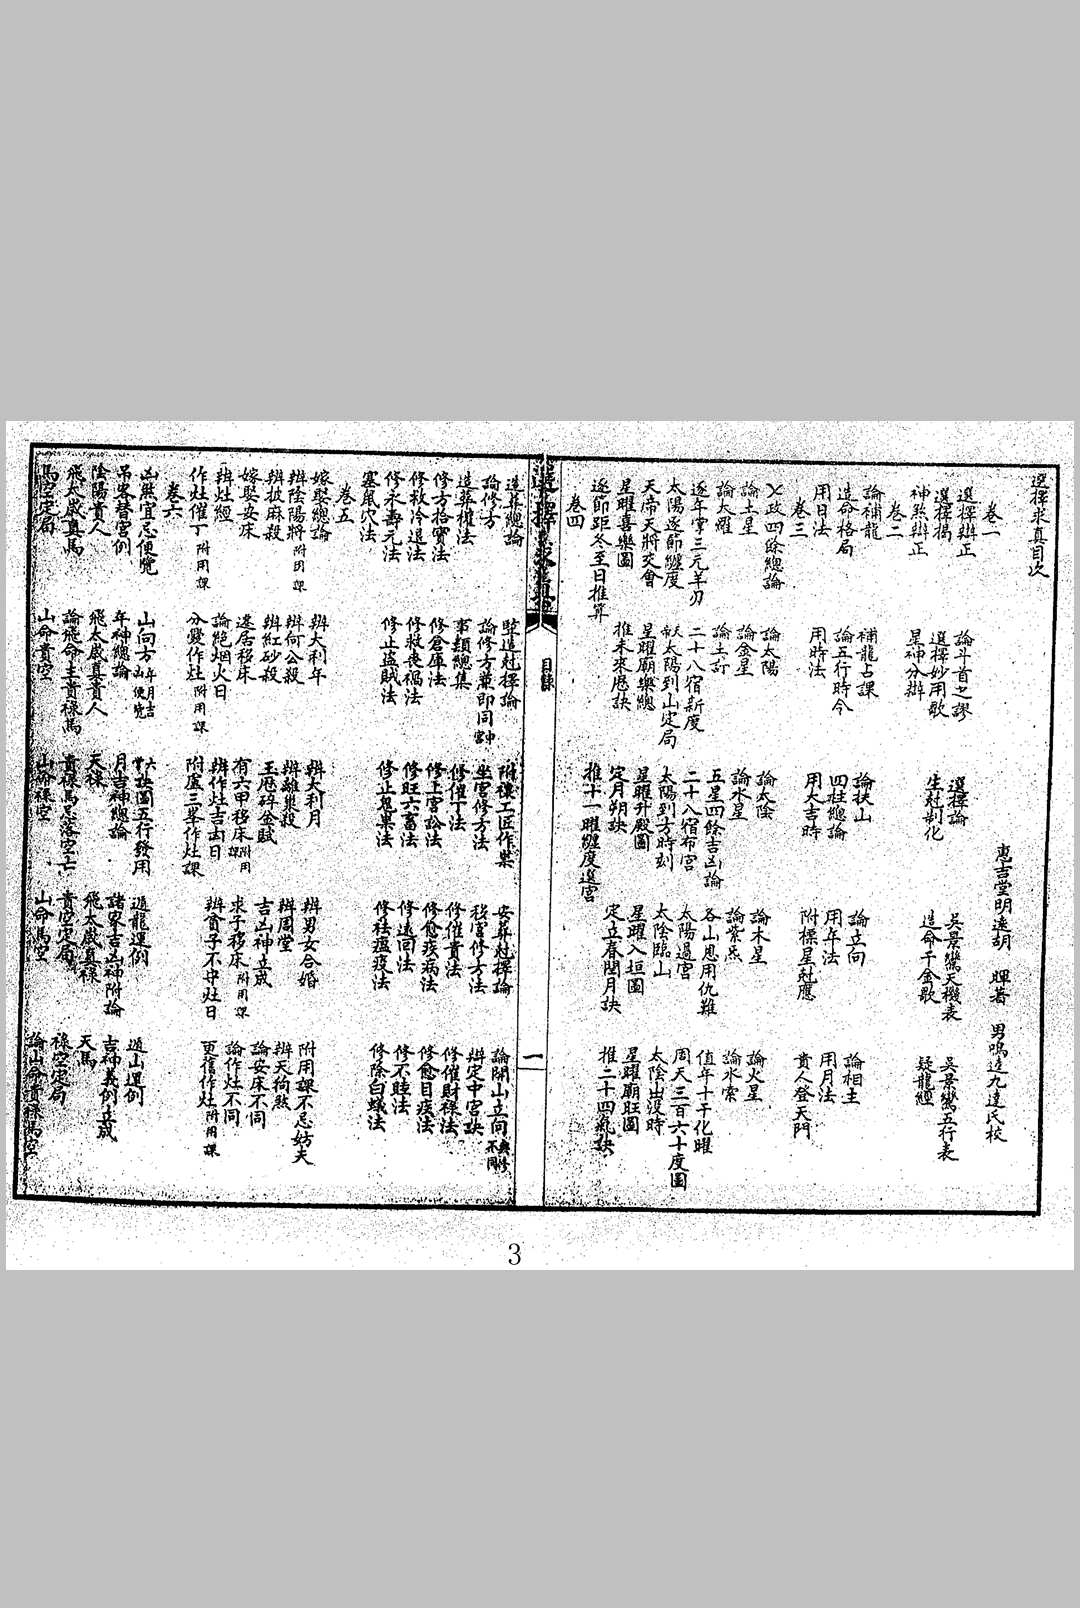 選擇求真目次
惠吉堂明遠胡　暉著　男鳴達九達氏校
卷一
選擇辨正　論斗首之謬　選擇論　吳景鸞天機表　吳景鸞五行表
選擇揭　選擇妙用歌　生尅制化　造命千金歌　疑龍經
神煞辨正　星神分辦
卷二
論補龍　補龍古課　論扶山　論立向　論相主
造命格局　論五行時令　四柱總論　用年法　用月法
用日法　用時法　用大吉時　附標星尅應　貴人登天門
卷三
七政四餘總論　論太陽　論太陰　論木星　論火星
論土星　論金星　論水星　論紫炁　論水孛
論大羅　論土計　五星四餘吉凶論　各山恩用仇難　值年十干化曜
逐年掌三元羊刃　二十八宿新度　二十八宿布宮　太陽過宮　周天三百六十度圖
太陽逐節纏度　太陽到山定局　太陽到方時刻　太陰臨山　太陰出沒時
天帝天將交會　星曜廟樂總　星曜升殿圖　星曜入垣圖　星曜廟旺圖
星曜喜樂圖　推未來曆訣　定月朔訣　定立春閏月訣　推二十四氣訣
逐節距冬至日推算　推十一曜纏度過宮
卷四
選擇求真
目錄
一
造葬總論　豎造尅擇論　附禳工匠作祟　安葬尅擇論　論開山立向與修不同
論修方　論修方兼即同中宮　坐宮修方法　移宮修方法　辨定中宮訣
造葬權法　事類總集　修催丁法　修催貴法　修催財祿法
修方拾寶法　修倉庫法　修上官訟法　修愈疾病法　修愈目疾法
修救冷退法　修救喪禍法　修旺六畜法　修遠回法　修不睦法
修永壽元法　修止盜賊法　修止鬼祟法　修祛瘟疫法　修除白蟻法
塞鼠穴法
卷五
嫁娶總論　辨大利年　辨大利月　辨男女合婚　附用課不忌姑夫
辨陰陽將附用課　辨何公殺　辨離巢殺　辨周堂　辨天狗煞
辨披麻殺　辨紅砂殺　玉曆碎金賦　吉凶神立成　論安床不同
嫁娶安床　遷居移床　有六甲移床附用課　求子移床附用課　論作灶不同
辨灶經　論絕烟火日　辨作灶吉凶日　辨貪子不中灶日　更信作灶附用課
作灶催丁附用課　分爨作灶附用課　附盧三峯作灶課
卷六
凶煞宜忌便覽　山向方年月吉凶便覽　六十四墳圖五行發用　遁龍運例　遁山運例
吊客替宮例　年神總論　月吉神總論　諸家吉凶神附論　吉神義例立成
陰陽貴人　飛太歲真貴人　天祿　飛太歲真祿　天馬
飛太歲真馬　論飛命主貴祿馬　貴祿馬忌落空亡　貴空定局　祿空定局
馬空定局　山命貴空　山命祿空　山命馬空　論山命貴祿馬空
3